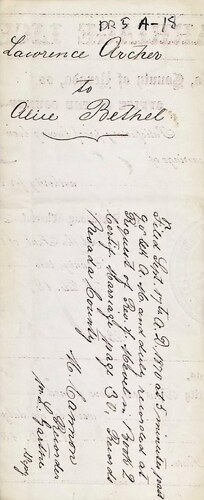 DR 5 A-18
Lawrence Archer
to
Alice Bethel
Filed Sept. 17th A.D. 1870 at 5 minutes past
9 o'clk A.M. and duly recorded at
Request of Rev. J. in Book 2
Certif. Marriage page 30. Records
Nevada County
H. Cannon
Recorder
Dep.